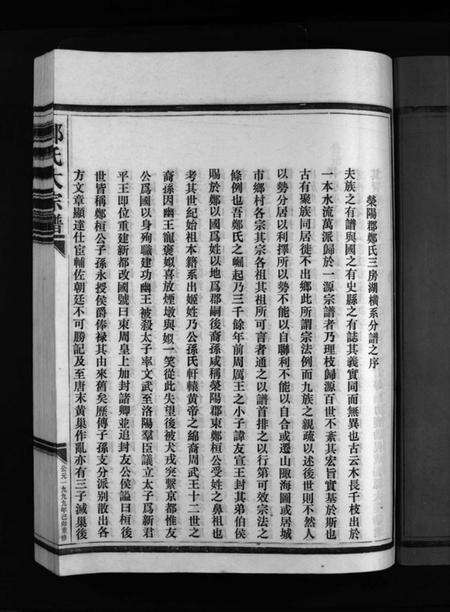 滎陽郡鄭氏三房湖橫系分譜之序
夫族之有譜與國之有史縣之有誌其義實同而無異也古云木長千枝出於
一本水流萬派歸於一源宗譜者乃理枝歸源百世不紊其宏旨實基於斯也
古有聚族同居徙不出鄉此所謂宗法例而九族之親疏以述後世則不然人
以勢分居以利擇所以勢不能以自聯利不能以自合或遷山陬海圖或居城
市鄉村各宗其宗各祖其祖所可言者通之以譜首排之以行第可效宗法之
條例也吾鄭氏之崛起乃三千餘年前周厲王之小子諱友宣王封其弟伯侯
賜於鄭以國爲姓以地爲郡嗣後裔孫咸稱滎陽郡東鄭桓公受姓之鼻祖也
考其世紀始祖本籍系出姬姓乃公孫氏軒轅黃帝之綿裔周武王十二世之
裔孫因幽王寵褒姒喜放煙墩與姒一笑從此失望後被犬戎突繫京都惟友
公爲國以身殉職建功幽王被殺太子率文武至洛陽羣臣議立太子爲新君
平王卽位重建新都改國號曰東周皇上加封諸卿並追封友公侯謚曰桓後
世皆稱鄭桓公子孫永授侯爵俸祿其由來舊矣歷傳子孫支分派別散出各
方文章顯達仕宦輔佐朝廷不可勝記及至唐末黃巢作亂亦有三子滅巢後
鄭氏大宗譜
公元一九九九年己卯重修